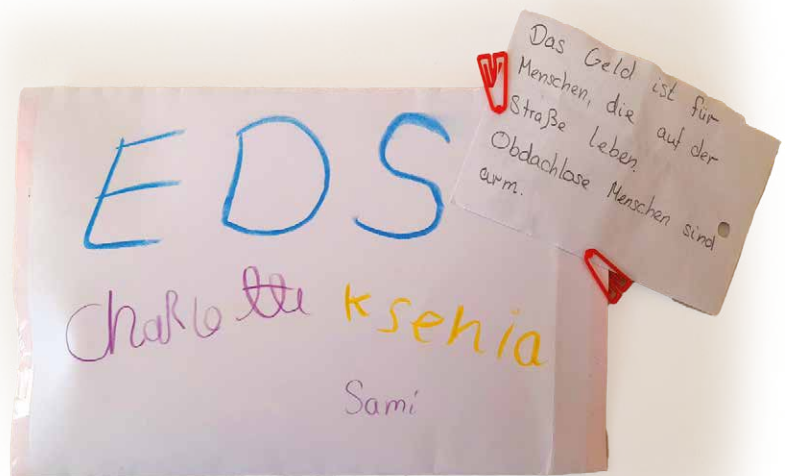 EDS
Charlotte Ksenia
Sami
Das Geld ist für
Menschen, die auf der
Straße leben.
Obdachlose Menschen sind
arm.